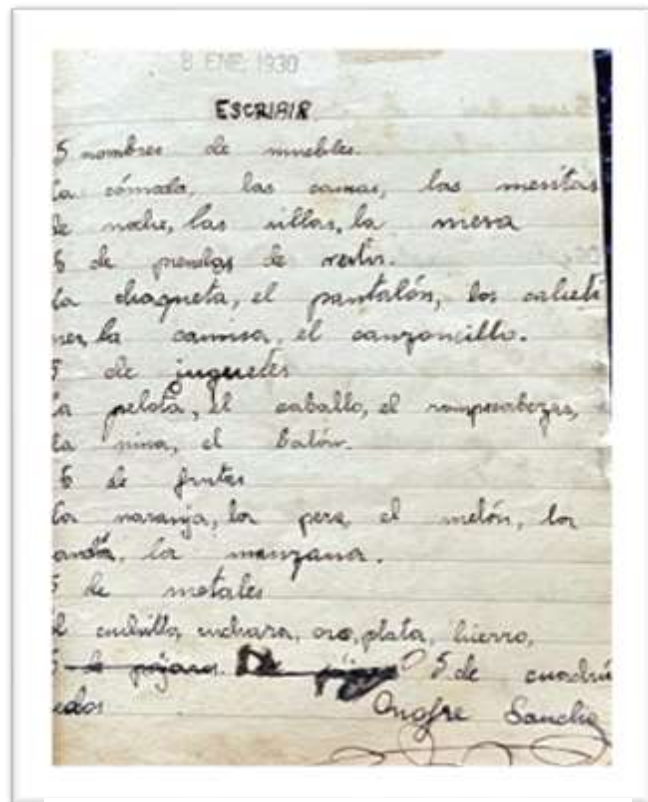 8 ENE. 1930
ESCRIBIR
5 nombres de muebles.
la cómoda, las camas, las mesitas
de noche, las sillas, la mesa
5 de prendas de vestir.
la chaqueta, el pantalón, los calceti
nes, la camisa, el canzoncillo.
5 de juguetes
la pelota, el caballo, el rompecabezas,
la nina, el balón.
5 de frutas
la naranja, la pera, el melón, la
la manzana.
5 de metales
el cuchillo, cuchara, oro, plata, hierro,
5 de pájaros. 5 de cuadrú
pedos Onofre Sanchis